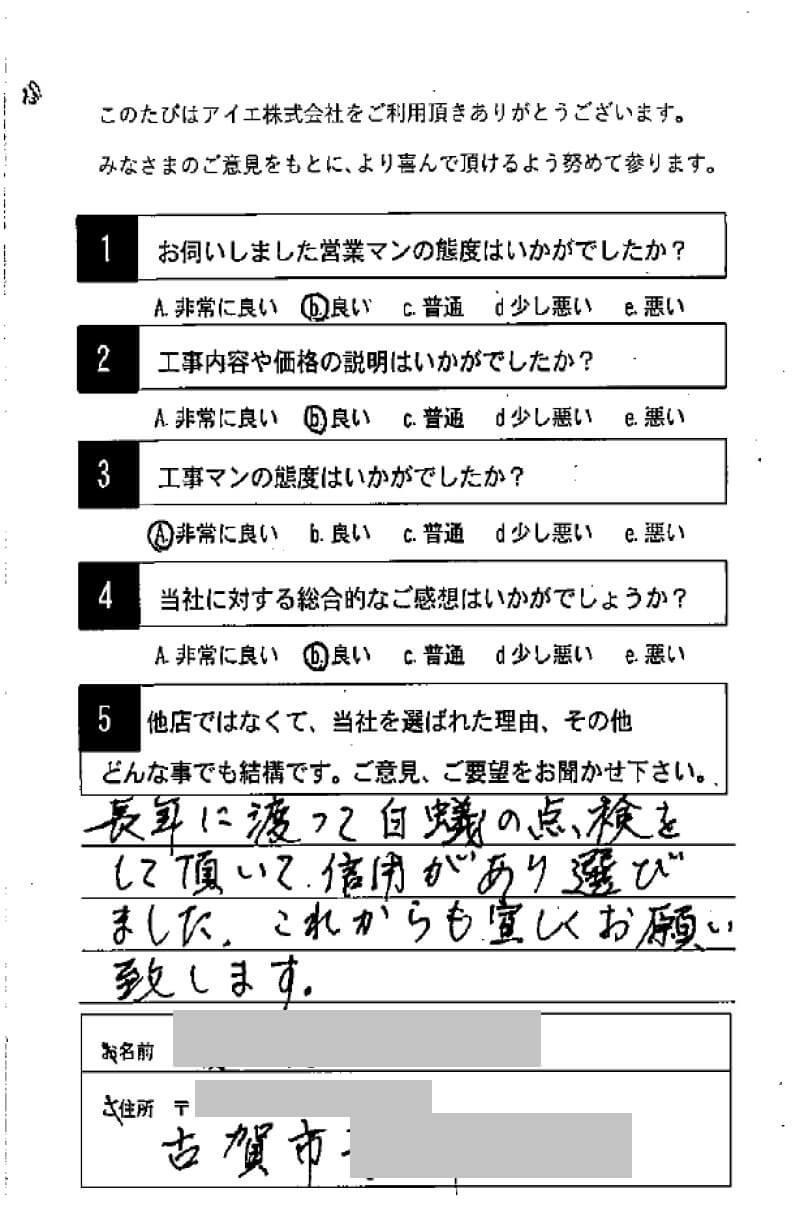 このたびはアイエ株式会社をご利用頂きありがとうございます。
みなさまのご意見をもとに、より喜んで頂けるよう努めて参ります。
1 お伺いしました営業マンの態度はいかがでしたか？
A. 非常に良い b. 良い c. 普通 d 少し悪い e. 悪い
2 工事内容や価格の説明はいかがでしたか？
A. 非常に良い b. 良い c. 普通 d 少し悪い e. 悪い
3 工事マンの態度はいかがでしたか？
A. 非常に良い b. 良い c. 普通 d 少し悪い e. 悪い
4 当社に対する総合的なご感想はいかがでしょうか？
A. 非常に良い b. 良い c. 普通 d 少し悪い e. 悪い
5 他店ではなくて、当社を選ばれた理由、その他
どんな事でも結構です。ご意見、ご要望をお聞かせ下さい。
長年に渡って白蟻の点検を
して頂いて、信用があり選び
ました。これからも宜しくお願い
致します。
お名前
ご住所 〒
古賀市